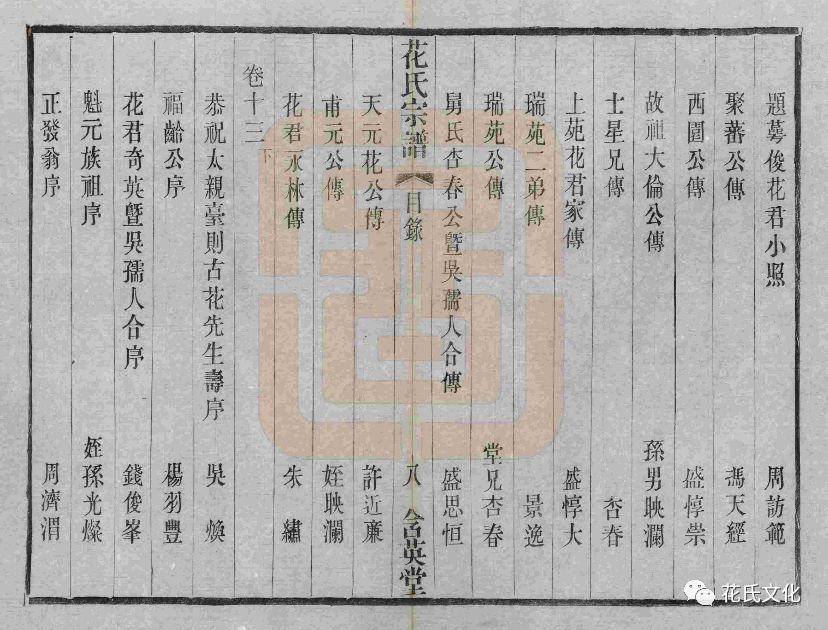 題蕚俊花君小照 周訪範
聚蕃公傳 馮天經
西園公傳 盛惇崇
故祖大倫公傳 孫男映瀾
士星兄傳 杏春
上苑花君家傳 盛惇大
瑞苑二弟傳 景逸
瑞苑公傳 堂兄杏春
舅氏杏春公暨吳孺人合傳 盛思恒
花氏宗譜 目錄 八 含英堂
天元花公傳 許近廉
甫元公傳 姪映瀾
花君永林傳 朱繡
卷十三下
恭祝太親臺則古花先生壽序 吳煥
福齡公序 楊羽豐
花君奇英暨吳孺人合序 錢俊峯
魁元族祖序 姪孫光燦
正發翁序 周濟渭
花氏文化